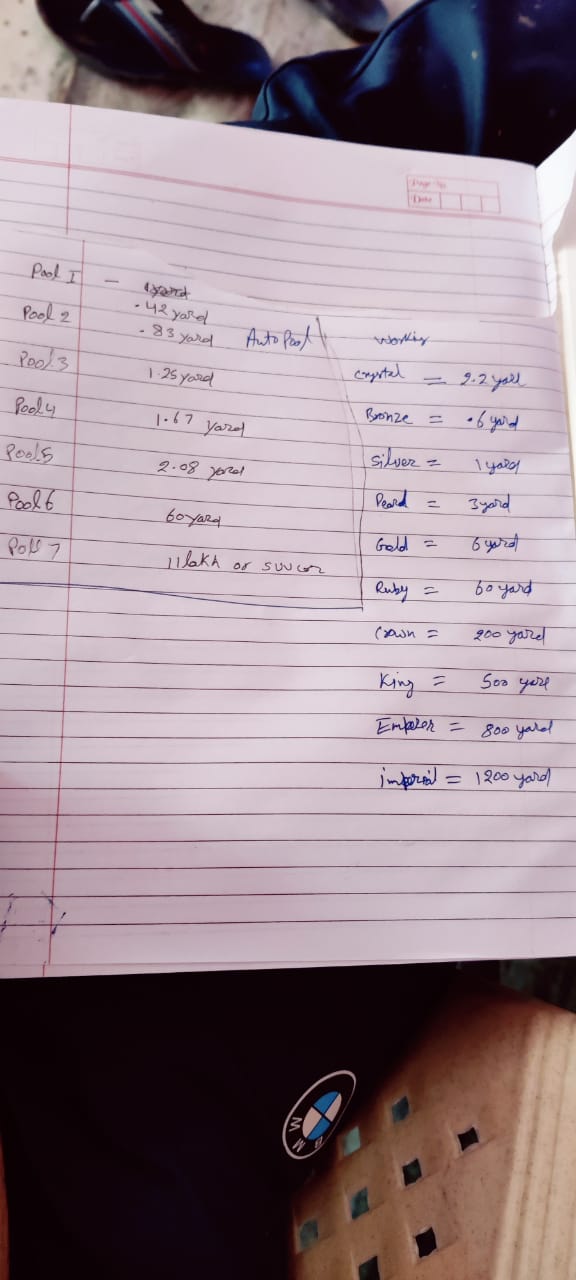 Page No
Date
Pool I -
.42 yard
Pool 2
.83 yard Auto Pool
Pool 3
1.25 yard
Pool 4
1.67 yard
Pool 5
2.08 yard
Pool 6
60 yard
Poll 7
11 lakh or
working
Crystal = 2.2 yard
Bronze = .6 yard
Silver = 1 yard
Peard = 3 yard
Gold = 6 yard
Ruby = 60 yard
Crown = 200 yard
King = 500 yard
Emperer = 800 yard
imperial = 1200 yard
BMW